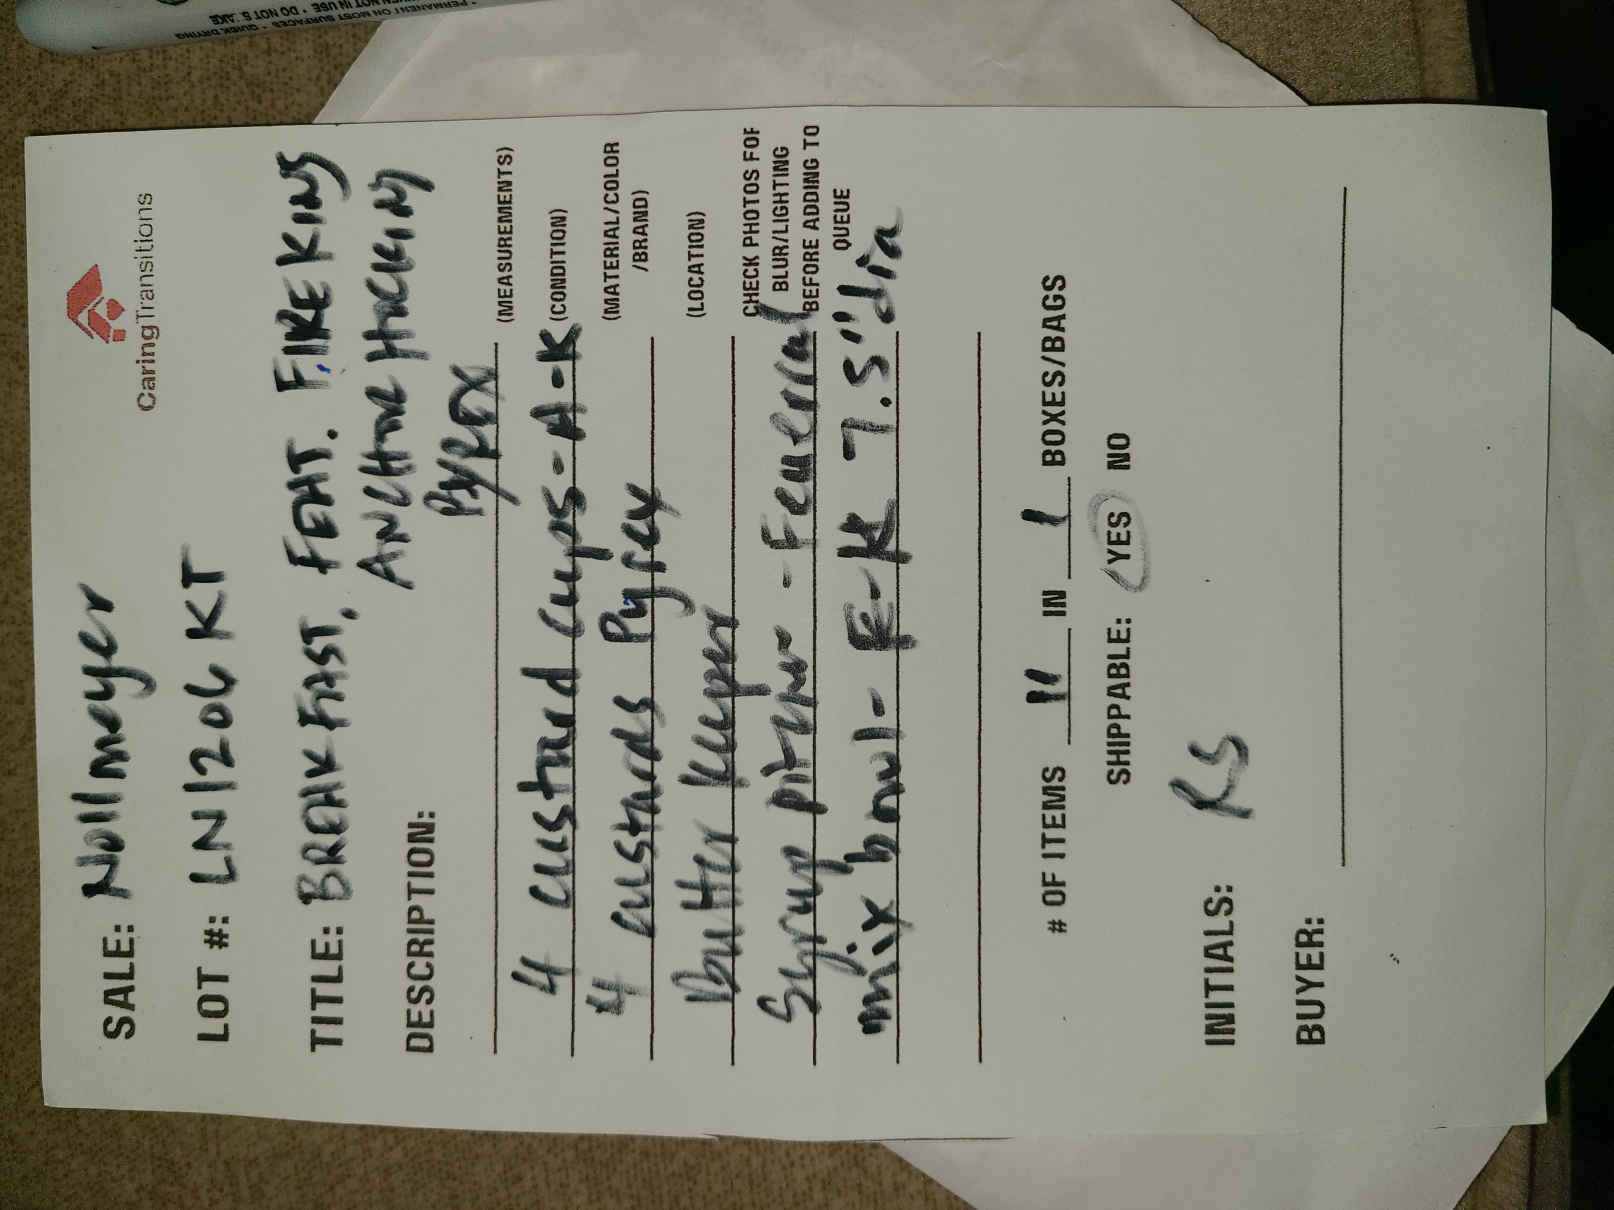 CaringTransitions
SALE: Nollmeyer
LOT #: LN1206 KT
TITLE: BREAKFAST, FEAT. FIREKING
ANCHOR HOCKING
Pyrex
DESCRIPTION:
(MEASUREMENTS)
4 custard cups - A-K (CONDITION)
4 custards Pyrex (MATERIAL/COLOR
/BRAND)
Butter Keeper (LOCATION)
Syrup pitcher - Federal CHECK PHOTOS FOR
BLUR/LIGHTING
mix bowl - F-K 7.5" dia BEFORE ADDING TO
QUEUE
# OF ITEMS 11 IN 1 BOXES/BAGS
SHIPPABLE: YES NO
INITIALS: RS
BUYER:
* PERMANENT ON MOST SURFACES * QUICK DRYING
WHEN NOT IN USE * DO NOT SHAKE